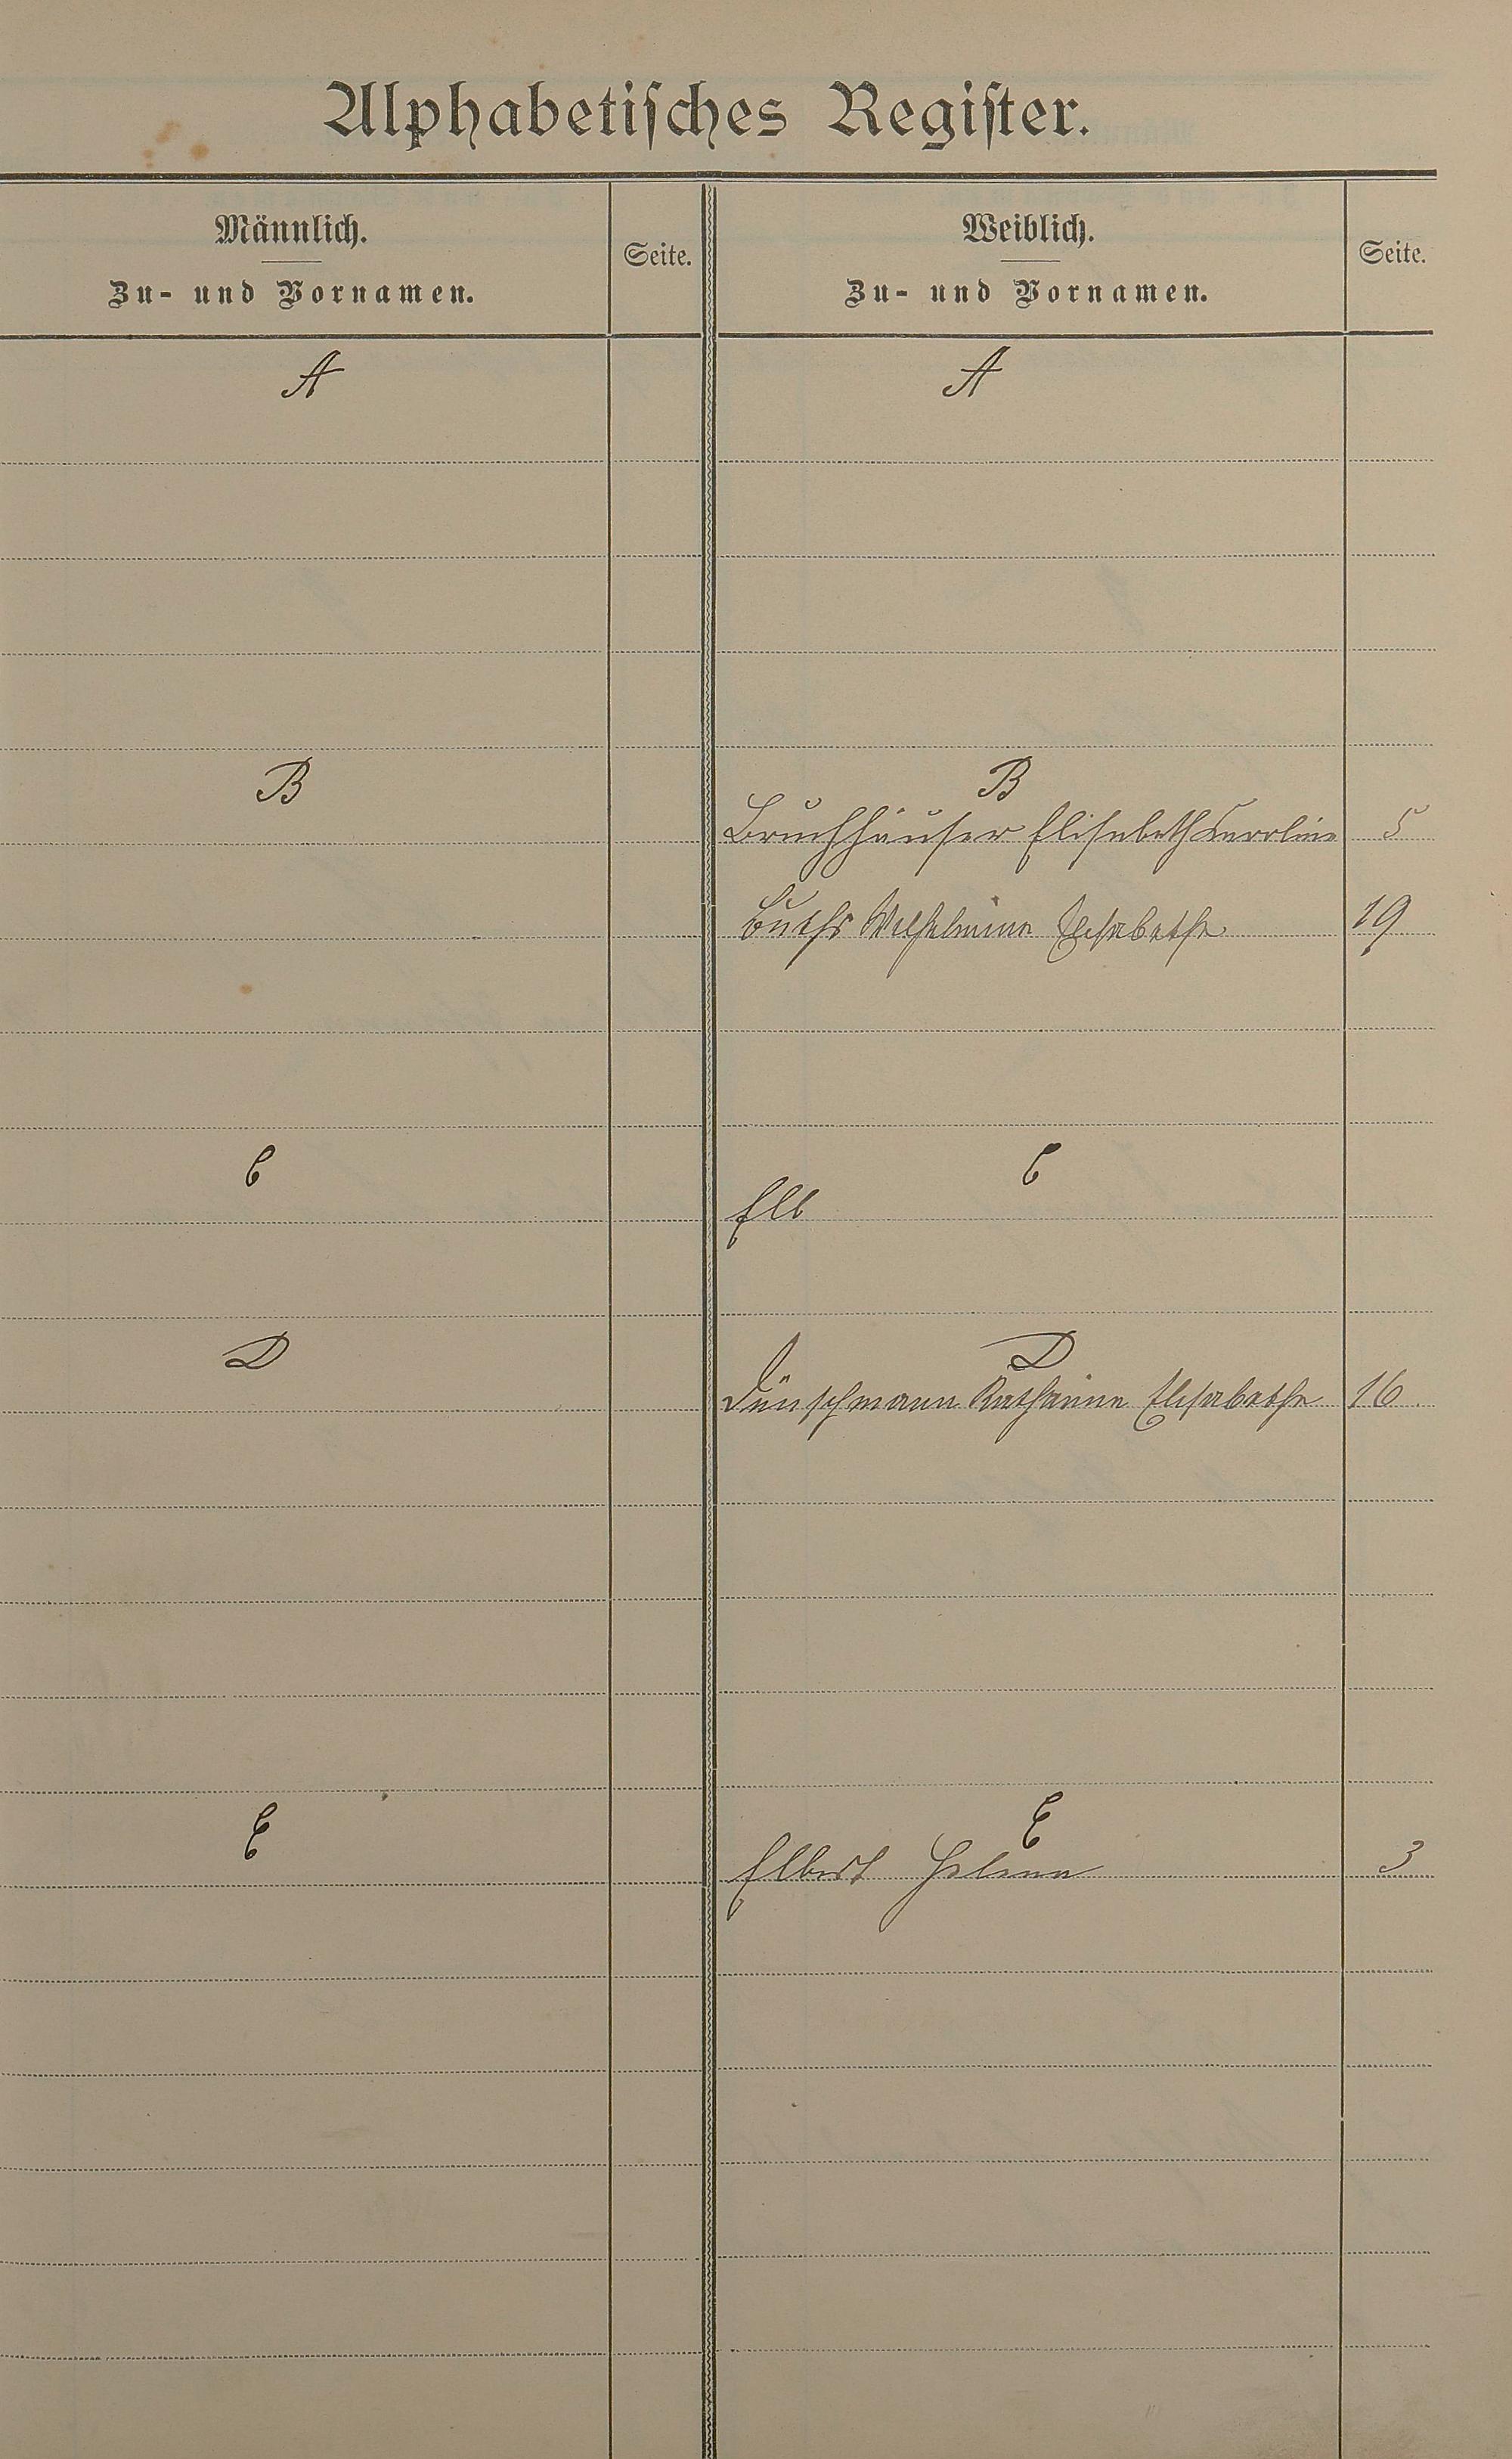 Alphabetisches Register.
Männlich.
Zu- und Vornamen.
Seite.
Weiblich.
Zu- und Vornamen.
Seite.
A
A
B
B
Bruchhäuser Elisabeth Karoline 5
Buths Wilhelmine Elisabethe 19
C
C
Elb
D
D
Dünschmann Katharine Elisabethe 16
E
E
Elbert Helena 3